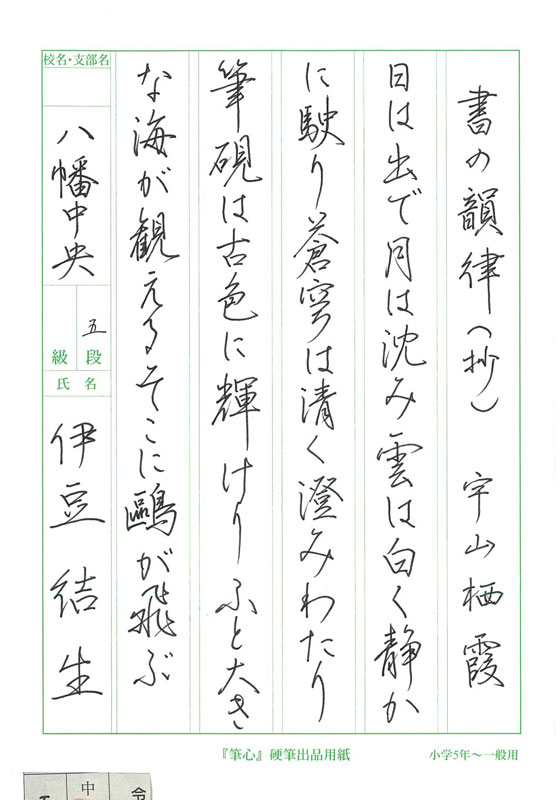 書の韻律(抄) 宇山栖霞
日は出で月は沈み雲は白く静か
に駛り蒼穹は清く澄みわたり
筆硯は古色に輝けりふと大き
な海が観えるそこに鷗が飛ぶ
校名・支部名
八幡中央
五
段
級
氏名
伊豆結生
『筆心』硬筆出品用紙
小学5年~一般用
中